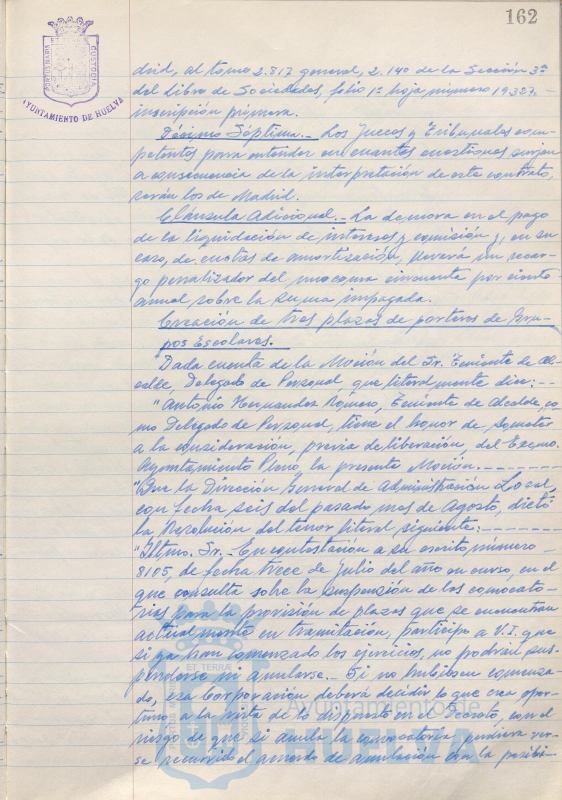 162
PORTUS MARIS CUSTODI
AYUNTAMIENTO DE HUELVA
drid, al tomo 2.817 general, 2.140 de la Sección 3ª
del libro de Sociedades, folio 1º hoja número 19327.-
inscripción primera.
Décimo Séptima.- Los Jueces y Tribunales com-
petentes para entender en cuantas cuestiones surjan
a consecuencia de la interpretación de este contrato,
serán los de Madrid.
Cláusula Adicional.- La demora en el pago
de la liquidación de intereses y comisión y, en su
caso, de cuotas de amortización, llevará un recar-
go penalizador del uno coma cincuenta por ciento
anual sobre la suma impagada.
Creación de tres plazas de porteros de Gru-
pos Escolares.-
Dada cuenta de la Moción del Sr. Teniente de Al-
calde, Delegado de Personal, que literalmente dice:--
"Antonio Hernandez Romero, Teniente de Alcalde, co-
mo Delegado de Personal, tiene el honor de someter
a la consideración, previa deliberación, del Excmo.
Ayuntamiento Pleno, la presente Moción.------
"Que la Dirección General de Administración Local,
con fecha seis del pasado mes de Agosto, dictó
la Resolución del tenor literal siguiente:------
"Iltmo. Sr.- En contestación a su escrito número
8105, de fecha trece de Julio del año en curso, en el
que consulta sobre la suspensión de las convocato-
rias para la provisión de plazas que se encuentran
actualmente en tramitación, participo a V.I. que
si ya han comenzado los ejercicios, no podrán sus-
penderse ni anularse.- Si no hubiesen comenza-
do, esa Corporación deberá decidir lo que crea opor-
tuno, a la vista de lo dispuesto en el Decreto, con el
riesgo de que si anula la convocatoria pudiera ver-
se recurrido el acuerdo de anulación con la posibi-
ET TERRAE
Ayuntamiento de
HUELVA